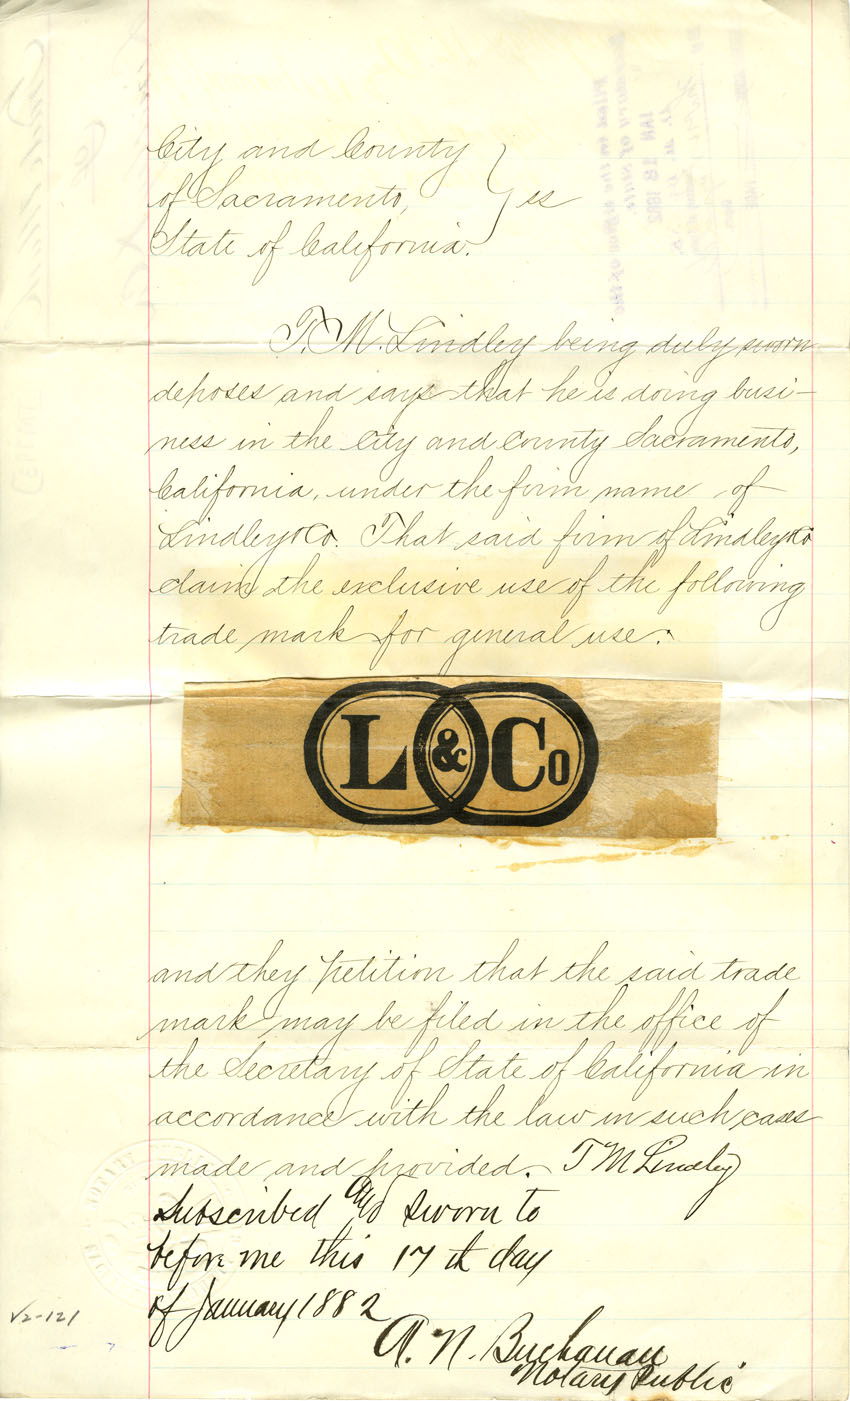 City and County
of Sacramento, } ss
State of California.
T. M. Lindley being duly sworn
deposes and says that he is doing busi-
ness in the City and County Sacramento,
California, under the firm name of
Lindley & Co. That said firm of Lindley & Co
claim the exclusive use of the following
trade mark for general use:
L & Co
and they petition that the said trade
mark may be filed in the office of
the Secretary of State of California in
accordance with the law in such cases
made and provided. T M Lindley
Subscribed and sworn to
before me this 17th day
of January 1882
A. N. Buchanan
Notary Public
V2-121